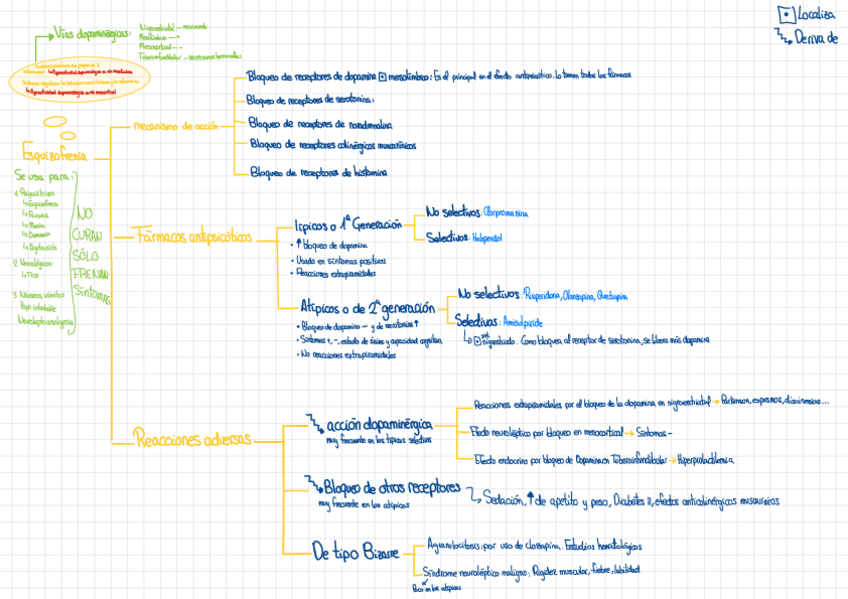 Localiza
Deriva de
Vías dopaminérgicas:
Nigroestriatal — movimiento
Mesolímbica — +
Mesocortical — -
Tuberoinfundibular — secreciones hormonales
Esquizofrenia
Se usa para:
1. Psiquiátricos
↳ Esquizofrenia
↳ Psicosis
↳ Manía
↳ Demencia
↳ Agitación
2. Neurológicos
↳ Tics
3. Náuseas, vómitos
Hipo intratable
Neuroleptoanalgesia
NO
CURAN
SÓLO
FRENAN
Síntomas
mecanismo de acción
Bloqueo de receptores de dopamina mesolímbico: Es el principal en el efecto antipsicótico. Lo tienen todos los fármacos
Bloqueo de receptores de serotonina:
Bloqueo de receptores de noradrenalina
Bloqueo de receptores colinérgicos muscarínicos
Bloqueo de receptores de histamina
Fármacos antipsicóticos
Típicos o 1ª Generación
• ↑ bloqueo de dopamina
• Usado en síntomas positivos
• Reacciones extrapiramidales
No selectivos: Clorpromazina
Selectivos: Haloperidol
Atípicos o de 2ª generación
• Bloqueo de dopamina — y de serotonina ↑
• Síntomas +, -, estado de ánimo y capacidad cognitiva
• No reacciones extrapiramidales
No selectivos: Risperidona, Olanzapina, Quetiapina
Selectivos: Amisulpiride
nigroestriado. Como bloquea al receptor de serotonina, se libera más dopamina
Reacciones adversas
acción dopaminérgica
muy frecuente en los típicos selectivos
Reacciones extrapiramidales por el bloqueo de la dopamina en nigroestriatal → Parkinson, espasmos, discinesias...
Efecto neuroléptico por bloqueo en mesocortical → Síntomas -
Efecto endocrino por bloqueo de Dopamina en Tuberoinfundibular → Hiperprolactinemia
Bloqueo de otros receptores
muy frecuente en los atípicos
Sedación, ↑ de apetito y peso, Diabetes II, efectos anticolinérgicos muscarínicos
De tipo Bizarre
Agranulocitosis: por uso de clozapina. Estudios hematológicos
Síndrome neuroléptico maligno: Rigidez muscular, fiebre, labilidad
Poco en los atípicos